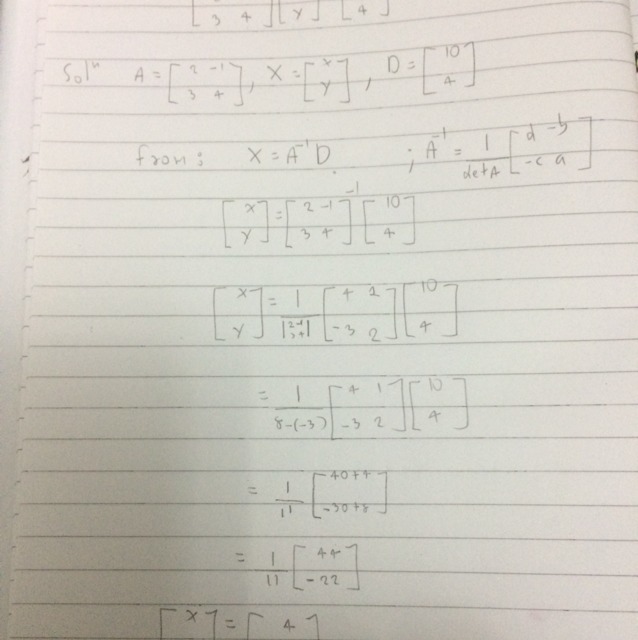 [3 4][y] [4]
Solⁿ A = [2 -1; 3 4], X = [x; y], D = [10; 4]
from: X = A⁻¹D ; A⁻¹ = 1/detA [d -b; -c a]
[x; y] = [2 -1; 3 4]⁻¹ [10; 4]
[x; y] = 1/|2 -1; 3 4| [4 2; -3 2] [10; 4]
= 1/(8-(-3)) [4 1; -3 2] [10; 4]
= 1/11 [40+4; -30+8]
= 1/11 [44; -22]
[x = [4